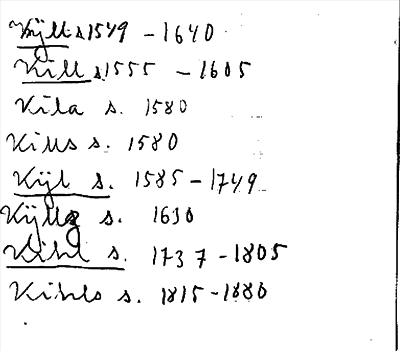 Kÿll s 1549 - 1640
Kill s. 1555 - 1605
Kila s. 1580
Kills s. 1580
Kijl s. 1585 - 1749
s. 1630
Kihl s. 1737 - 1805
Kihls s. 1815 - 1880